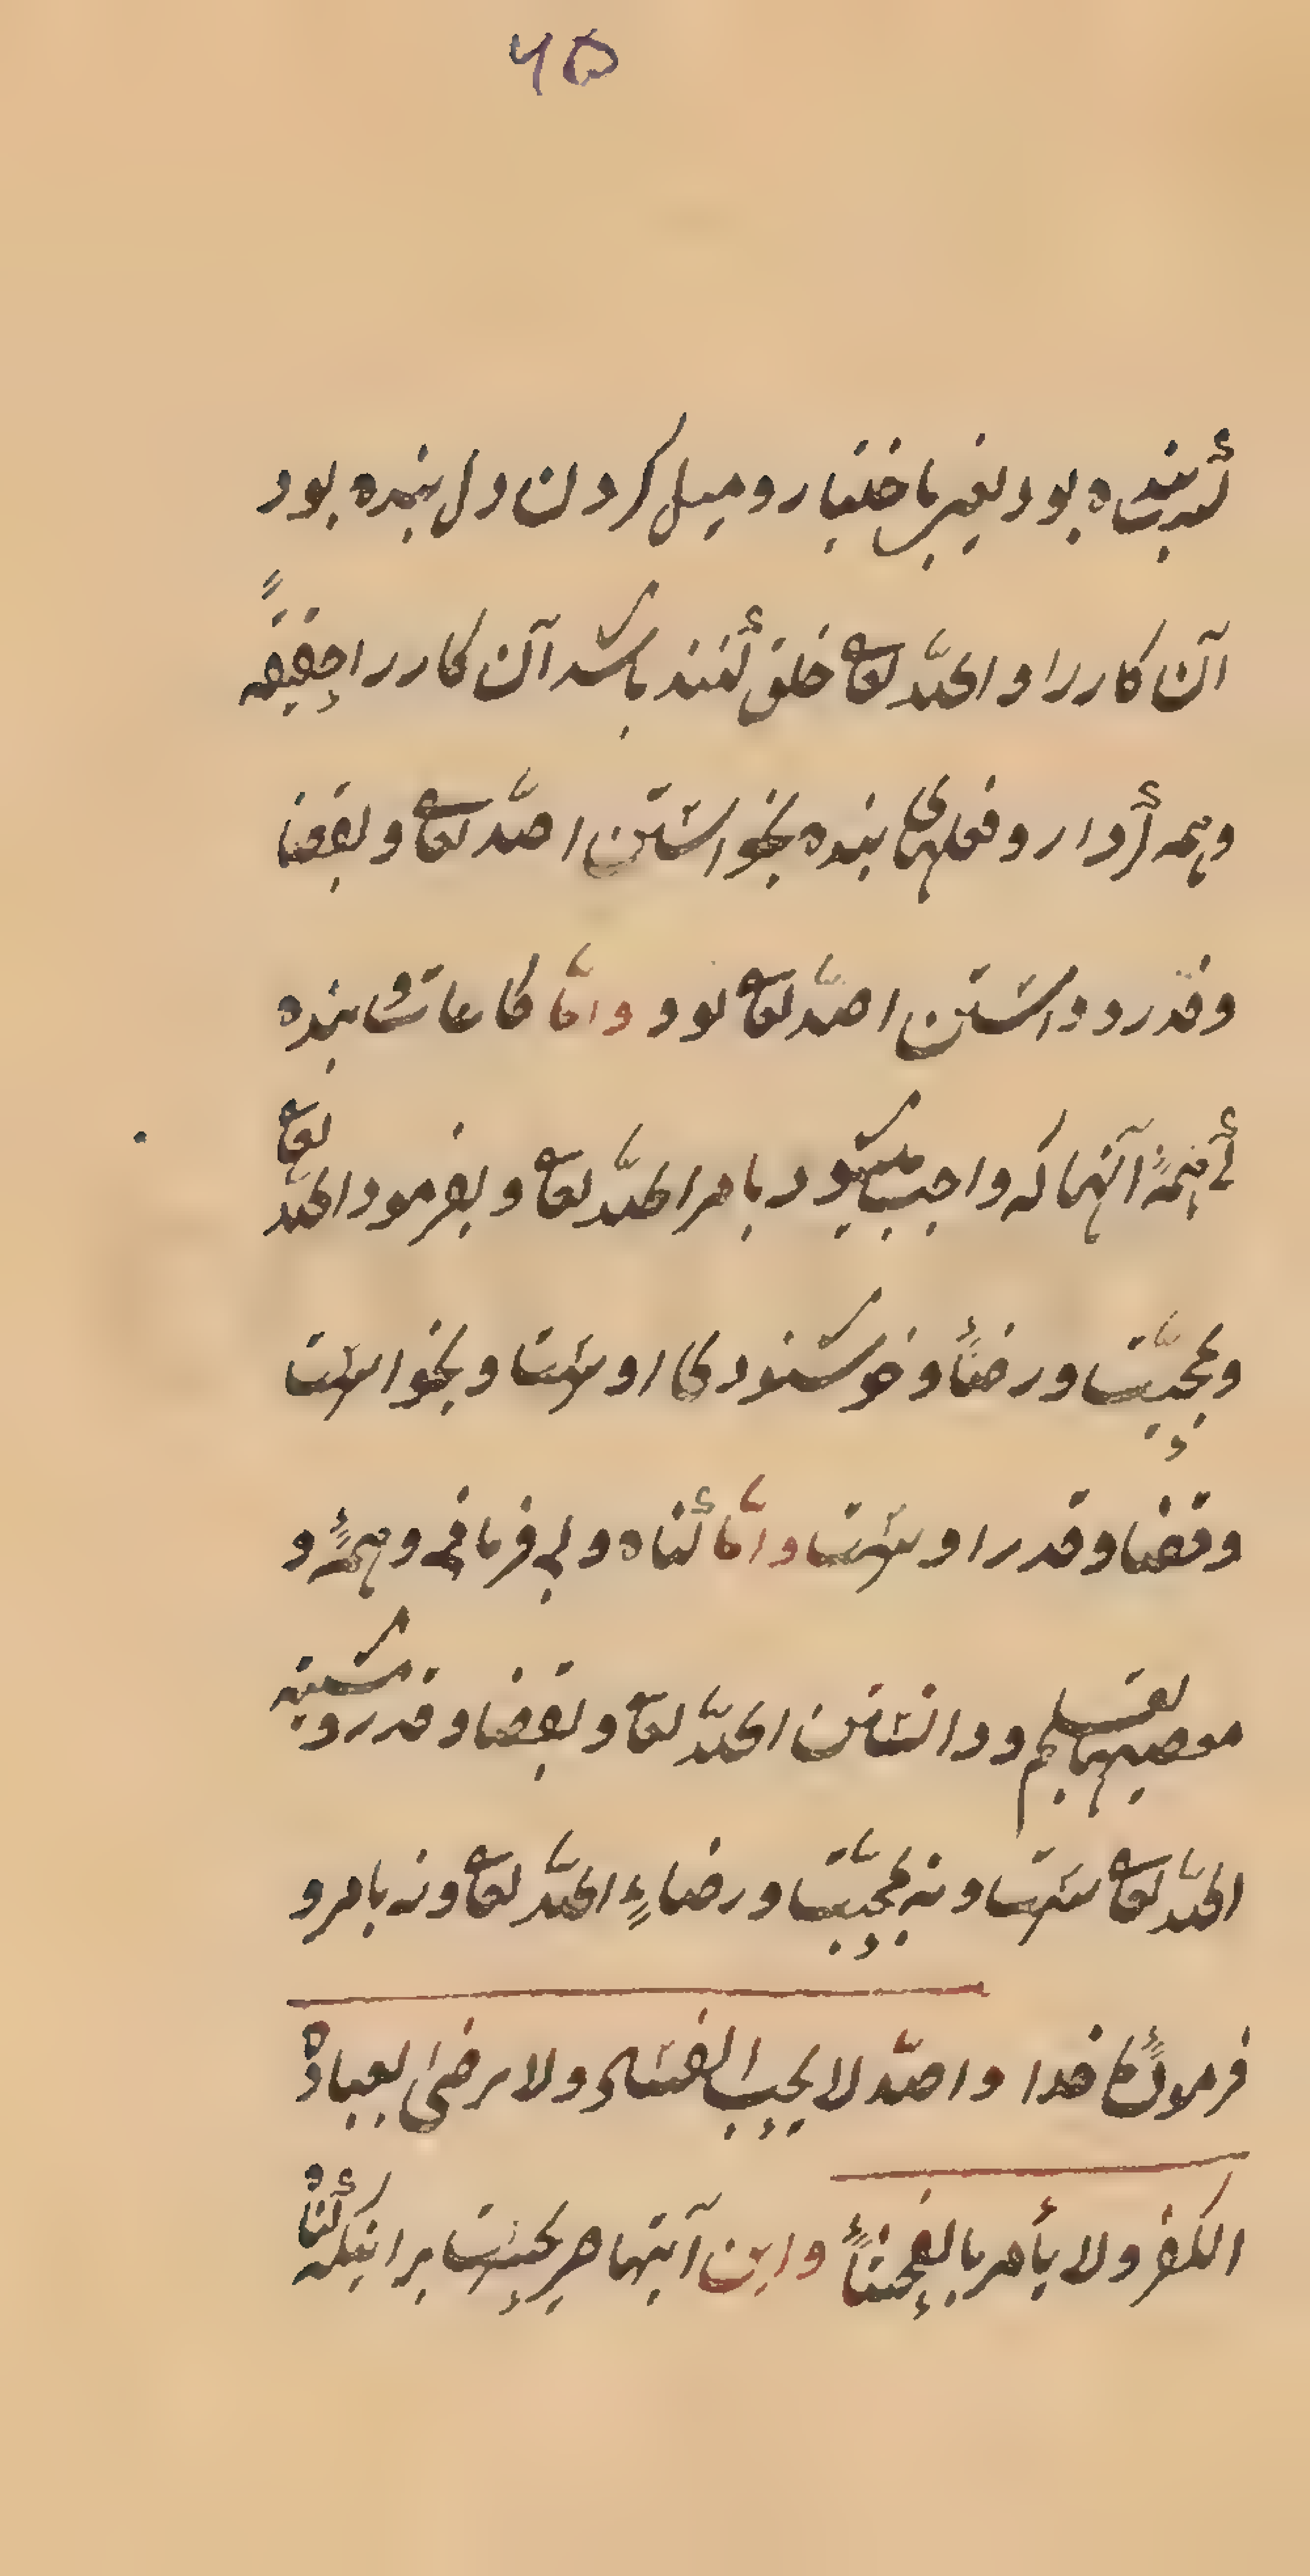 ۴۵
بنده بود یعنی باختیار و میل کردن دل بنده بود
آن کار را و الله تعالی خلق کنند باشد آن کار را حقیقة
و همه کردار و فعلهای بنده بخواستن الله تعالی و بقضا
و قدر و دانستن الله تعالی بود و امّا طاعات بنده
همۀ آنها که واجب میشود بامر الله تعالی و بفرمود الله تعالی
و بمحبّت و رضأ و خوشنودی اوست و بخواست
و قضا و قدر اوست و امّا گناه و بی فرمانی و همۀ و
معصیتها بعلم و دانستن الله تعالی و بقضا و قدر و مشیّة
الله تعالی ست و نه بمحبّت و رضاء الله تعالی و نه بامر و
خدا والله لا یحب الفساد ولا یرضی لعباده
الکفر ولا یأمر بالفحشأ و این آیتها بر اینکه گناه